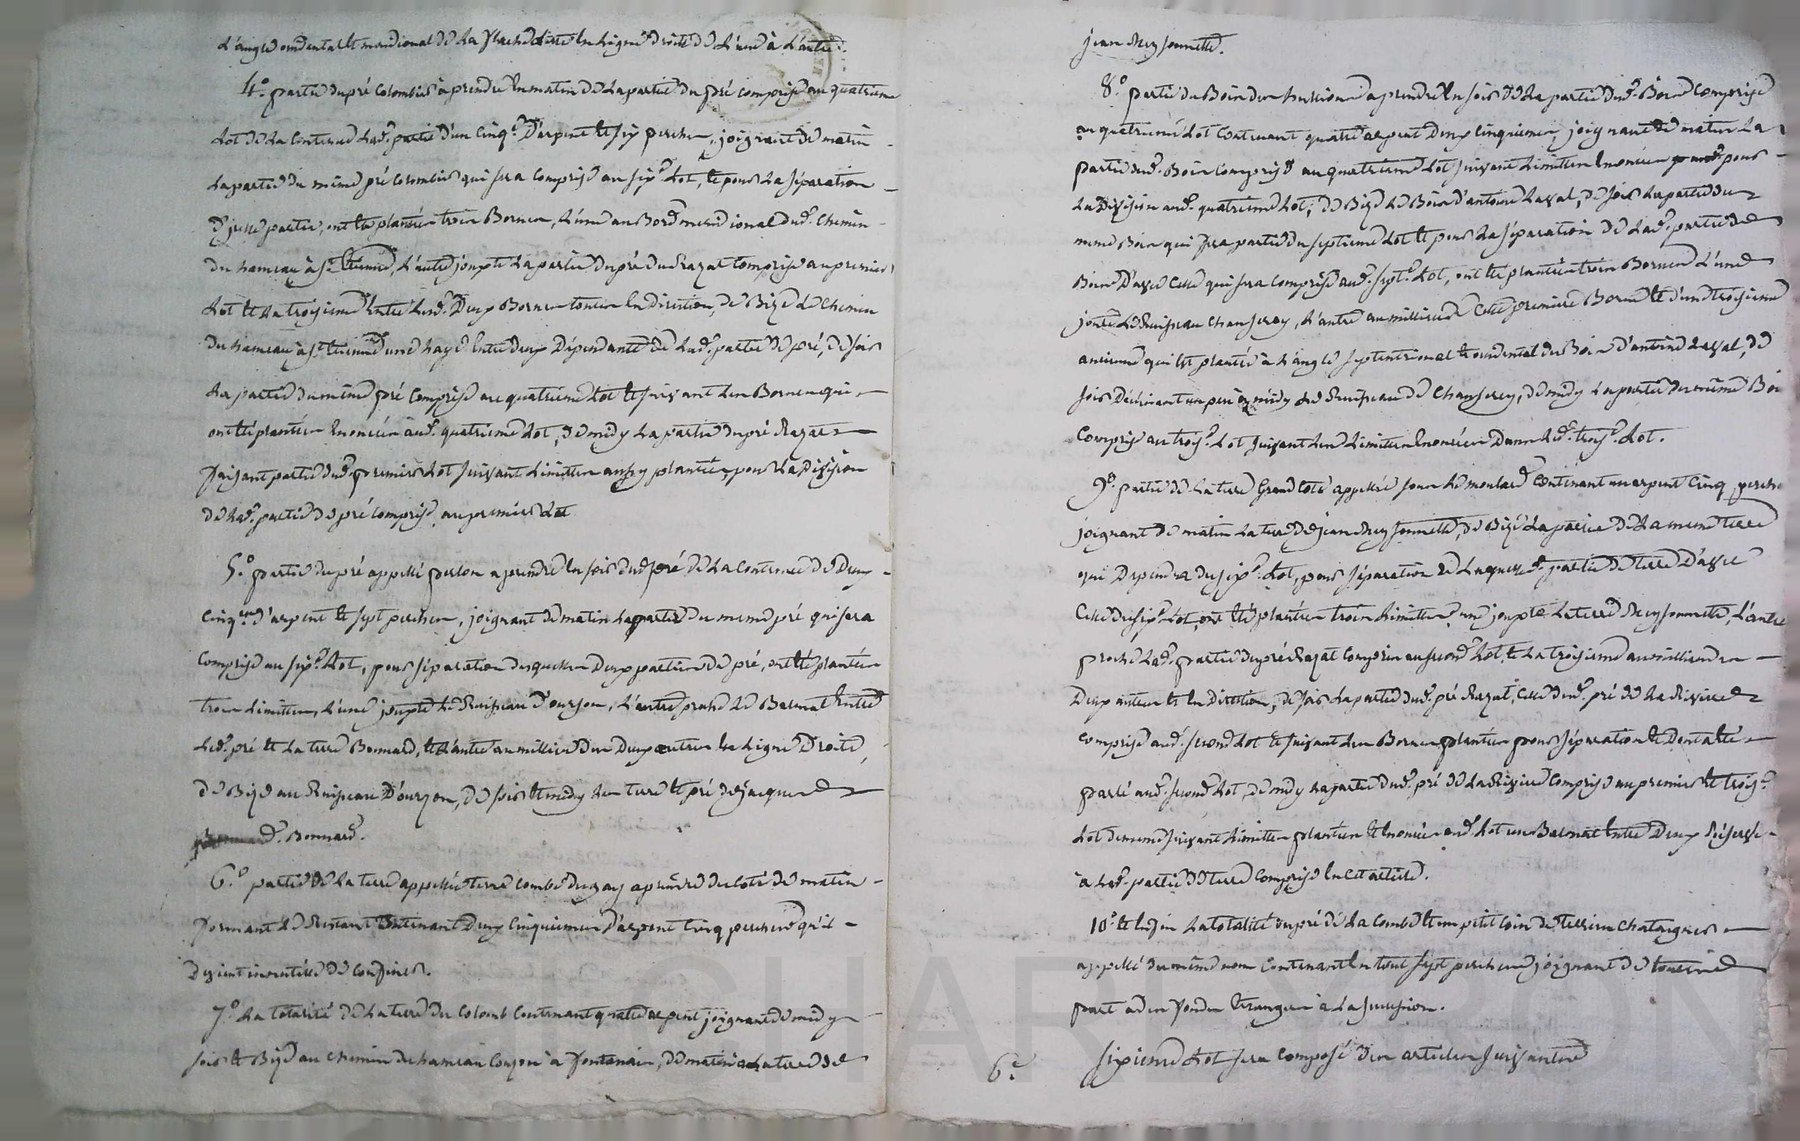 L'angle occidental et meridional de la ditte en ligne droite de l'une à l'autre.
4.° partie du pré Colombier à prendre en matin de la partie du pré comprise au quatrieme
Lot de la contenue lad. partie d'un cinq.e d'arpent et six perches, joignant de matin
la partie du même pré Colombier qui sera comprise au six.e Lot, et pour la séparation
d'icelle partie, ont été plantées trois Bornes, l'une au Bord meridional dud. Chemin
du hameau à St Etienne, l'autre joupte la partie du pré du Razat comprise au premier
Lot et la troisieme entre lesd. deux Bornes toutes en direction, de Bize le Chemin
du hameau à St Etienne une haye entre deux dépendante de lad. partie de pré, de soir
la partie du même pré comprise au quatrieme Lot et suivant les Bornes qui
ont été plantées enoncées aud. quatrieme Lot, de midy la partie du pré Razat
faisant partie dud. premier Lot suivant limittes aussy plantées pour la division
de lad. partie de pré comprise au premier Lot
5.° partie du pré appellé perlon a prendre en soir dud. pré de la contenue de deux
cinq.mes d'arpent et sept perches, joignant de matin la partie du meme pré qui sera
comprise au six.e Lot, pour séparation desquelles deux parties de pré, ont été plantées
trois limittes, l'une joupte le Ruisseau d'ourzon, l'autre proche le Barnat entre
led. pré et la terre Bonnard, et l'autre au millieu des deux autres en ligne droite,
de Bize au Ruisseau d'ourzon, de soir et midy les terre et pré de jacques
d. Bonnard.
6.° partie de la terre appellée terre combe du gay a prendre du coté de matin
formant le restant contenant deux cinquiemes d'arpent cinq perches qu'il
devient inventille de confiner.
7.° La totalité de la terre du Colomb contenant quatre arpent joignant de midy
soir et Bize au chemin du hameau Conjon à fontanair, de matin a la terre de
jean Reyssonnette.
8.° partie du Bois des hussions a prendre en soir de la partie dud. Bois comprise
au quatrieme Lot contenant quatre arpent deux cinquiemes, joignant de matin la
partie dud. Bois comprise au quatrieme Lot suivant limittes enoncées pour
la division aud. quatrieme Lot, de Bize le Bois d'antoine Laval, de soir la partie du
meme Bois qui sera partie du septieme Lot et pour la séparation de lad. partie de
Bois d'avec celle qui sera comprise aud. sept.e Lot, ont été plantées trois Bornes l'une
joupte le Ruisseau Chanserey, l'autre au millieu de cette premiere Borne et d'une troisieme
ancienne qui est plantée à l'angle septentrional et occidental du Bois d'antoine Laval, de
soir declinant un peu en midy le Ruisseau de Chanserey, de midy la partie du même Bois
comprise au trois.e Lot suivant les limittes enoncées dans led. trois.e Lot.
9.° partie de la terre grand cote appellée sous le moulard contenant un arpent cinq perches
joignant de matin la terre de jean Reyssonnette, de Bize la partie de la meme terre
qui dependra du six.e Lot, pour séparation de laquelle partie de terre d'avec
celle du six.e Lot, ont été plantées trois limittes une joupte la terre Reyssonnette, l'autre
proche lad. partie du pré Razat comprise au second Lot, et la troisieme au millieu des
deux autres et en direction, de soir la partie dud. pré Razat, celle dud. pré de la Riviere
comprise aud. second Lot et suivant les Bornes plantées pour séparation et dont a été
parlé aud. second Lot, de midy la partie dud. pré de la Riviere comprise au premier et trois.e
Lot de meme suivant limittes plantées et enoncées aud. Lot un Barnat entre deux réservé
a lad. partie de terre comprise en cet article.
10.° et enfin la totalité du pré de la Combe et un petit coin de terrein chataignier
appellé du même nom contenant en tout sept perches joignant de toute
part a des fonds etrangers à la succession.
6.e sixieme Lot sera composé des articles suivants
CHARLYRON